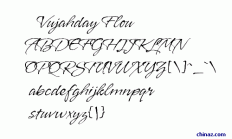 Vujahday Flou
ABCDEFGHIJKLMN
OPQRSTUVWXYZ[\]^_`\
abcdefghijklmnopqr
stuvwxyz{|}
chinaz.com